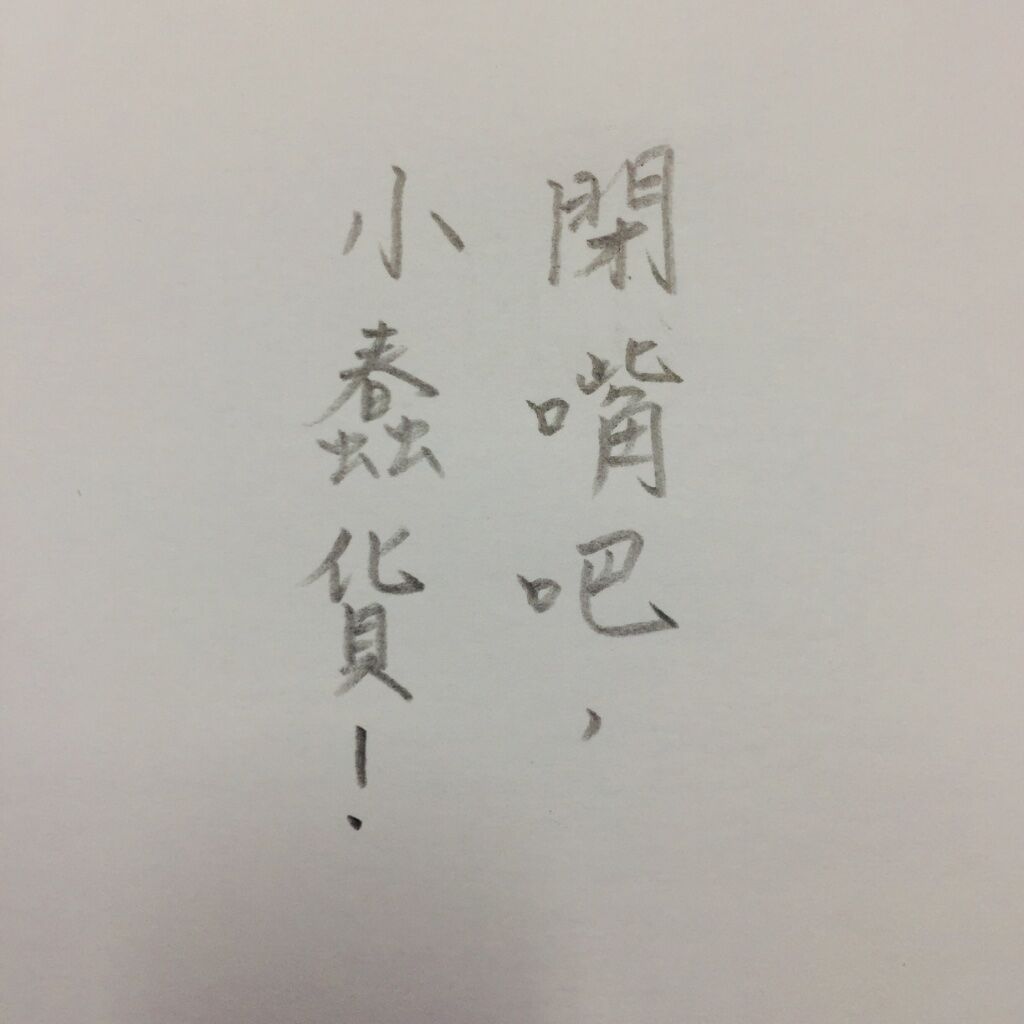 閉嘴吧，
小蠢貨！